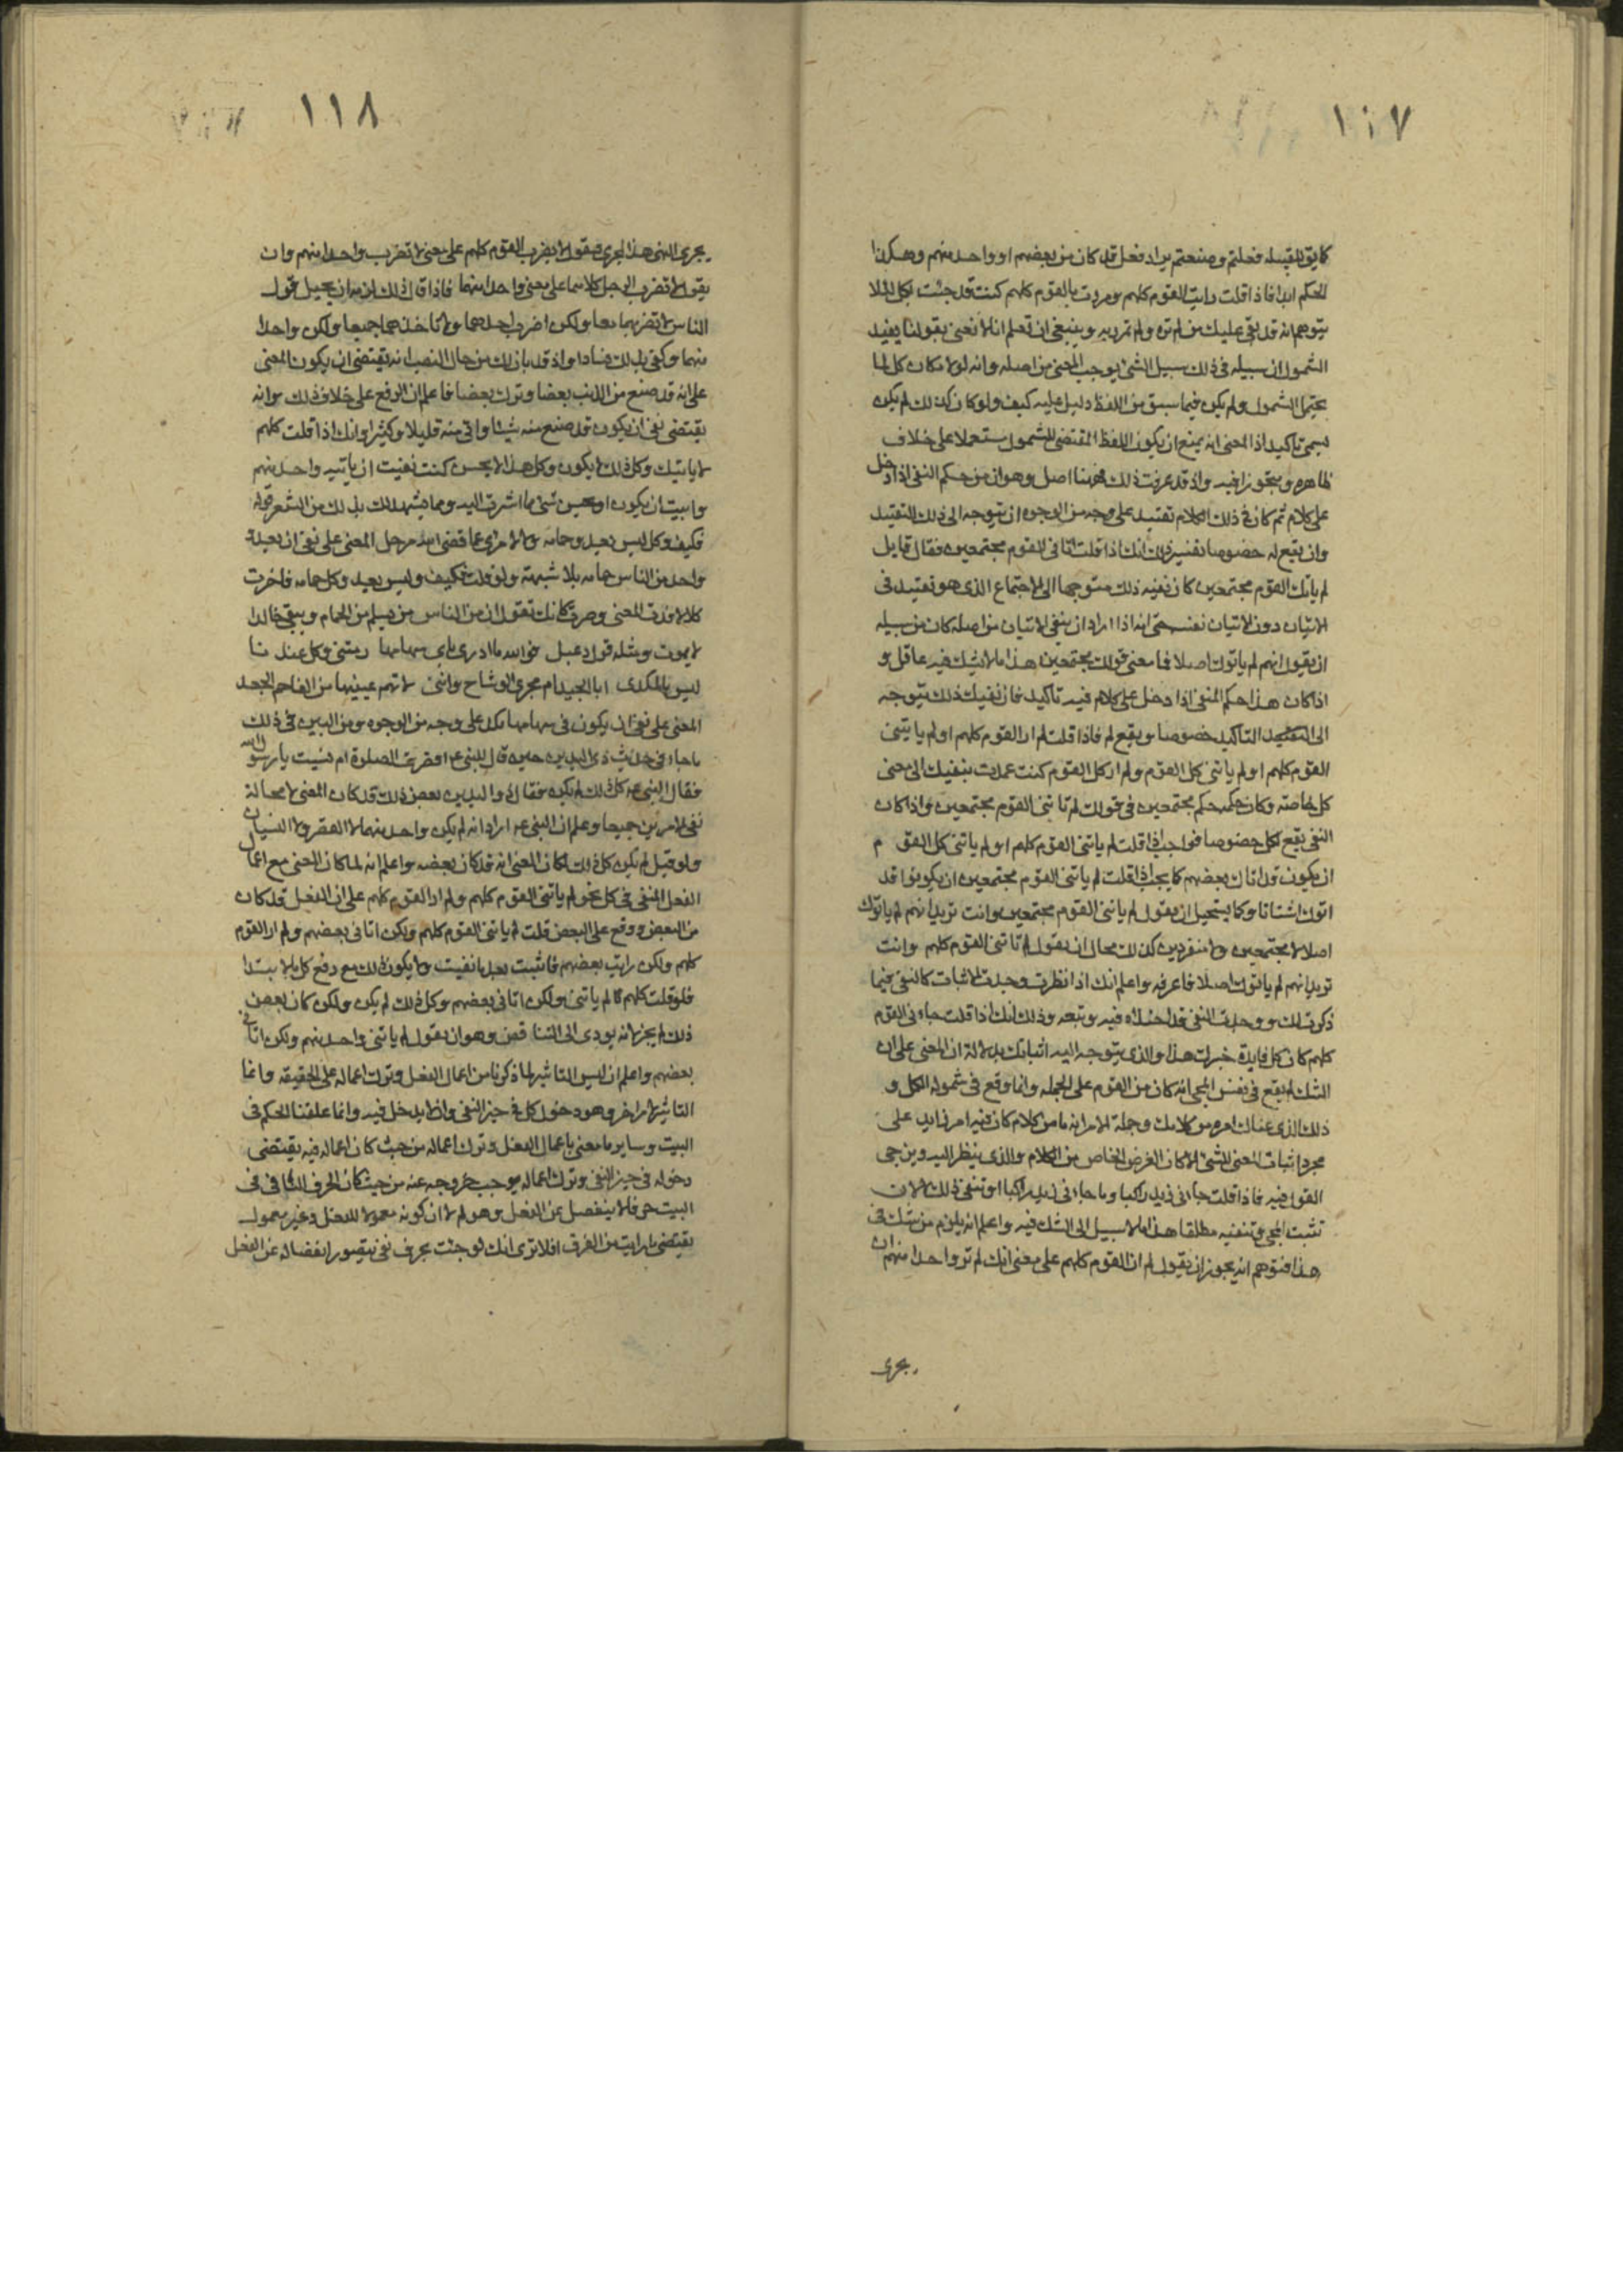 ١١٧
كما يق للقبيله فعلتم وصنعتم يراد فعل قد كان من بعضهم او واحد منهم وهكذا
الحكم ابدا فاذا قلت رايت القوم كلهم ومررت بالقوم كلهم كنت قد جئت بكل لئلا
يتوهم انه قد بقى عليك من لم تره ولم تمرر به وينبغى ان تعلم انا لا نعنى بقولنا يفيد
الشمول ان سبيله فى ذلك سبيل الشئ يوجب المعنى من اصله وانه لولا مكان كل لما
عقل الشمول ولم يكن فيما سبق من اللفظ دليل عليه كيف ولو كان كذلك لم يكن
يسمى تاكيدا اذا المعنى انه يمنع ان يكون اللفظ المقتضى للشمول مستعملا على خلاف
ظاهره ومتجوزا فيه واذ قد عرفت ذلك فههنا اصل وهو ان من حكم النفى اذا دخل
على كلام ثم كان فى ذلك الكلام تقييد على وجه من الوجوه ان يتوجه الى ذلك التقييد
وان يقع له خصوصا تفسير ذلك انك اذا قلت اتانى القوم مجتمعين فقال قايل
لم ياتك القوم مجتمعين كان نفيه ذلك متوجها الى الاجتماع الذى هو تقييد فى
الاتيان دون الاتيان نفسه حتى انه اذا اراد ان ينفى الاتيان من اصله كان من سبيله
ان يقول انهم لم ياتوك اصلا فما معنى قولك مجتمعين هذا ما لا يشك فيه عاقل و
اذا كان هذا حكم النفى اذا دخل على كلام فيه تاكيد فان نفيك ذلك يتوجه
الى التاكيد خصوصا ويقع له فاذا قلت لم ار القوم كلهم او لم ياتنى
القوم كلهم او لم ياتنى كل القوم ولم ار كل القوم كنت عمدت بنفيك الى معنى
كل خاصته وكان حكمه حكم مجتمعين فى قولك لم تاتنى القوم مجتمعين واذا كان
النفى يقع لكل خصوصا فواجب اذا قلت لم ياتنى القوم كلهم او لم ياتنى كل القوم
ان يكون قد اتاك بعضهم كما يجب اذا قلت لم ياتنى القوم مجتمعين ان يكونوا قد
اتوك اشتاتا وكما يستحيل ان يقول لم ياتنى القوم مجتمعين وانت تريد انهم لم ياتوك
اصلا لا مجتمعين ولا منفردين كذلك محال ان يقول لم تاتنى القوم كلهم وانت
تريد انهم لم ياتوك اصلا فاعرفه واعلم انك اذا نظرت وجدت الاثبات كالنفى فيما
ذكرت لك ووجدت النفى قد احتذاه فيه وتبعه وذلك انك اذا قلت جاءنى القوم
كلهم كان كل فايدة خبرك هذا والذى يتوجه اليه اثباتك بدلالة ان المعنى على ان
الشك لم يقع فى نفس المجى انه كان من القوم على الجمله وانما وقع فى شموله الكل و
ذلك الذى عناك امره من كلامك وجملة الامر انه ما من كلام كان فيه امر زايد على
مجرد اثبات المعنى للشئ الا كان الغرض الخاص من الكلام والذى ينظر اليه ويزجى
القول فيه فاذا قلت جاءنى زيد راكبا وما جاءنى زيد راكبا لم تنفى ذلك لان
تثبت المجى وتنفيه مطلقا هذا ما لا سبيل الى الشك فيه واعلم انه يلزم من شك فى
هذا فتوهم انه يجوز ان يقول لم ار القوم كلهم على معنى انك لم تر واحدا منهم ان
يجرى
١١٨
يجرى النهى هذا المجرى فيقول لا يضرب القوم كلهم على معنى لا تضرب واحدا منهم وان
يقول لا تضرب الرجلين كلاهما على معنى واحدا منهما فاذا قال ذلك لزمه ان يحيل قول
الناس لا تضربهما معا ولكن اضرب احدهما ولا تاخذهما جميعا ولكن واحدا
منهما وكفى بذلك فسادا واذ قد بان لك من حال النصب انه يقتضى ان يكون المعنى
على انه قد صنع من الذنب بعضا وترك بعضا فاعلم ان الرفع على خلاف ذلك وانه
يقتضى نفى ان يكون قد صنع منه شيئا واتى منه قليلا وكثيرا وانك اذا قلت كلهم
لا ياتيك وكل ذلك لا يكون وكل هذا لا يحسن كنت نفيت ان ياتيه واحد منهم
وابيت ان يكون او يحسن شئ مما اشرت اليه ومما يشهد لك بذلك من الشعر قوله
فكيف وكل ليس يعدو حمامه ولا لامرئ عما قضى الله مرحل المعنى على نفى ان يعدو
واحد من الناس حمامه بلا شبهة ولو قلت فكيف وليس يعدو كل حمامه فاخرت
كلا لافسدت المعنى وصرت كانك تقول ان من الناس من يسلم من الحمام ويبقى خالدا
لا يموت ومثله قول دعبل فوالله ما ادرى باى سهامها رمتنى وكل عندنا
ليس بالمكدى ابالجيد ام مجرى الوشاح واننى لاتهم عينيها مع الفاحم الجعد
المعنى على نفى ان يكون فى سهامها مكد على وجه من الوجوه ومن البين فى ذلك
ما جاء فى حديث ذى اليدين حين قال للنبى ع اقصرت الصلوة ام نسيت يا رسول الله
فقال النبى ع كل ذلك لم يكن فقال ذو اليدين بعض ذلك قد كان المعنى لا محالة
نفى الامرين جميعا وعلم ان النبى ع اراد انه لم يكن واحد منهما لا القصر ولا النسيان
ولو قيل لم يكن كل ذلك لكان المعنى انه قد كان بعضه واعلم انه لما كان المعنى مع اعمال
الفعل المنفى فى كل نحو لم ياتنى القوم كلهم ولم ار القوم كلهم على ان الفعل قد كان
من البعض ووقع على البعض قلت لم ياتنى القوم كلهم ولكن اتانى بعضهم ولم ار القوم
كلهم ولكن رايت بعضهم فاثبت بعد ما نفيت ولا يكون ذلك مع رفع كل بالابتدا
فلو قلت كلهم لم ياتنى ولكن اتانى بعضهم وكل ذلك لم يكن ولكن كان بعض
ذلك لم يجز لانه يودى الى التناقض وهو ان يقول لم ياتنى واحد منهم ولكن اتانى
بعضهم واعلم ان ليس التاثير لما ذكرنا من اعمال الفعل وترك اعماله على الحقيقه وانما
التاثير لامر اخر وهو دخول كل فى حيز النفى وان لا يدخل فيه وانما علقنا الحكم فى
البيت وساير ما معنى باعمال الفعل وترك اعماله من حيث كان اعماله فيه يقتضى
دخوله فى حيز النفى وترك اعماله يوجب خروجه عنه من حيث كان الحرف النافى فى
البيت حرفا لا ينفصل عن الفعل وهو لم لا ان كونه معمولا للفعل وغير معمول
يقتضى ما رايت من الفرق افلا ترى انك لو جئت بحرف نفى يتصور انفصاله عن الفعل